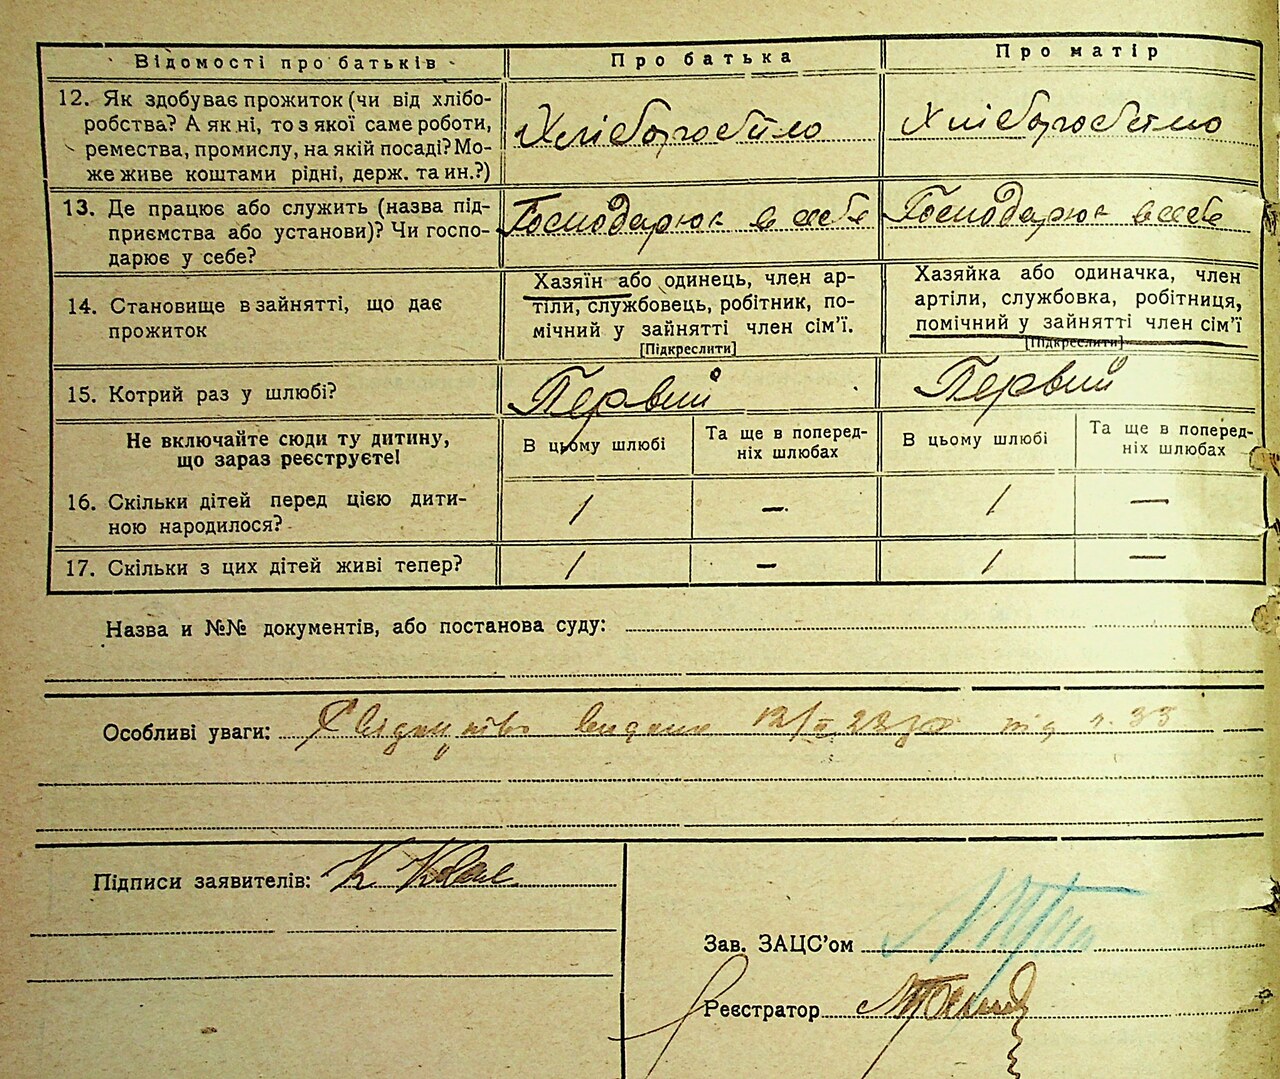 Відомості про батьків
Про батька
Про матір
12. Як здобуває прожиток (чи від хлібо-
робства? А як ні, то з якої саме роботи,
ремества, промислу, на якій посаді? Мо-
же живе коштами рідні, держ. та ин.?)
Хліборобство
Хліборобство
13. Де працює або служить (назва під-
приємства або установи)? Чи госпо-
дарює у себе?
Господарює в себе
Господарює в себе
14. Становище в зайнятті, що дає
прожиток
Хазяїн або одинець, член ар-
тіли, службовець, робітник, по-
мічний у зайнятті член сім’ї.
[Підкреслити]
Хазяйка або одиначка, член
артіли, службовка, робітниця,
помічний у зайнятті член сім’ї
[Підкреслити]
15. Котрий раз у шлюбі?
Первий
Первий
Не включайте сюди ту дитину,
що зараз реєструєте!
В цьому шлюбі
Та ще в поперед-
ніх шлюбах
В цьому шлюбі
Та ще в поперед-
ніх шлюбах
16. Скільки дітей перед цією дити-
ною народилося?
1
—
1
—
17. Скільки з цих дітей живі тепер?
1
—
1
—
Назва и №№ документів, або постанова суду:
Особливі уваги: видано під ч. 33
Підписи заявителів: К
Зав. ЗАЦС’ом
Реєстратор